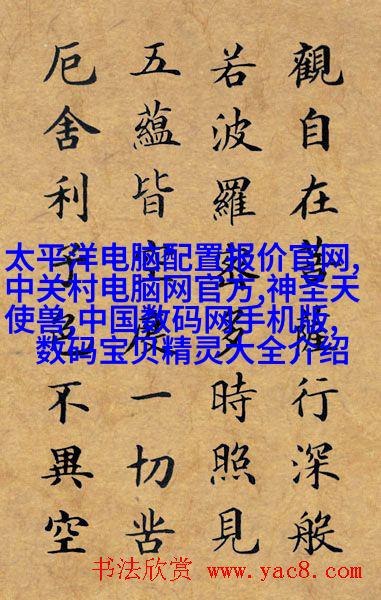 觀自在菩薩行深般
若波羅蜜多時照見
五蘊皆空度一切苦
厄舍利子色不異空
太平洋电脑配置报价官网,
中关村电脑网官方,神圣天
使兽,中国数码网手机版,
数码宝贝精灵大全介绍
书法欣赏 www.yac8.com